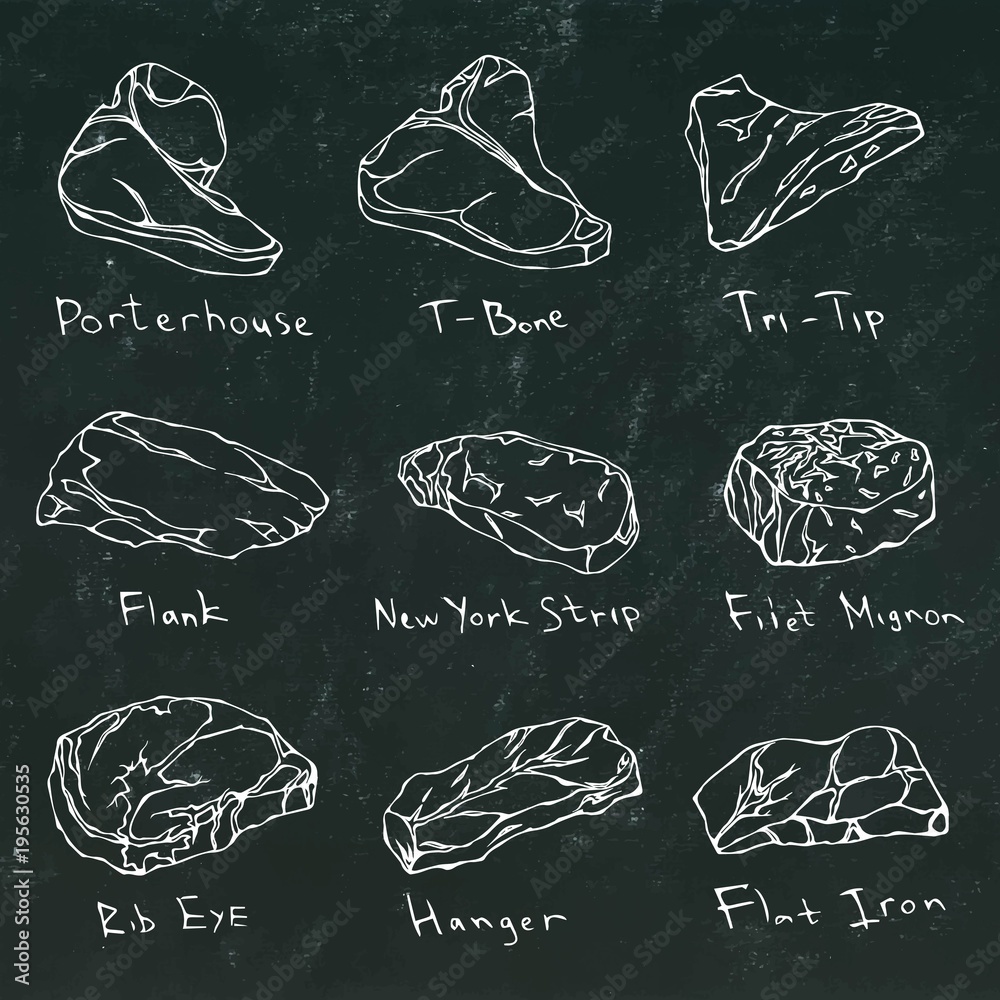 Porterhouse
T-Bone
Tri-Tip
Flank
New York Strip
Filet Mignon
Rib Eye
Hanger
Flat Iron
Adobe Stock | #195630535
Adobe Stock